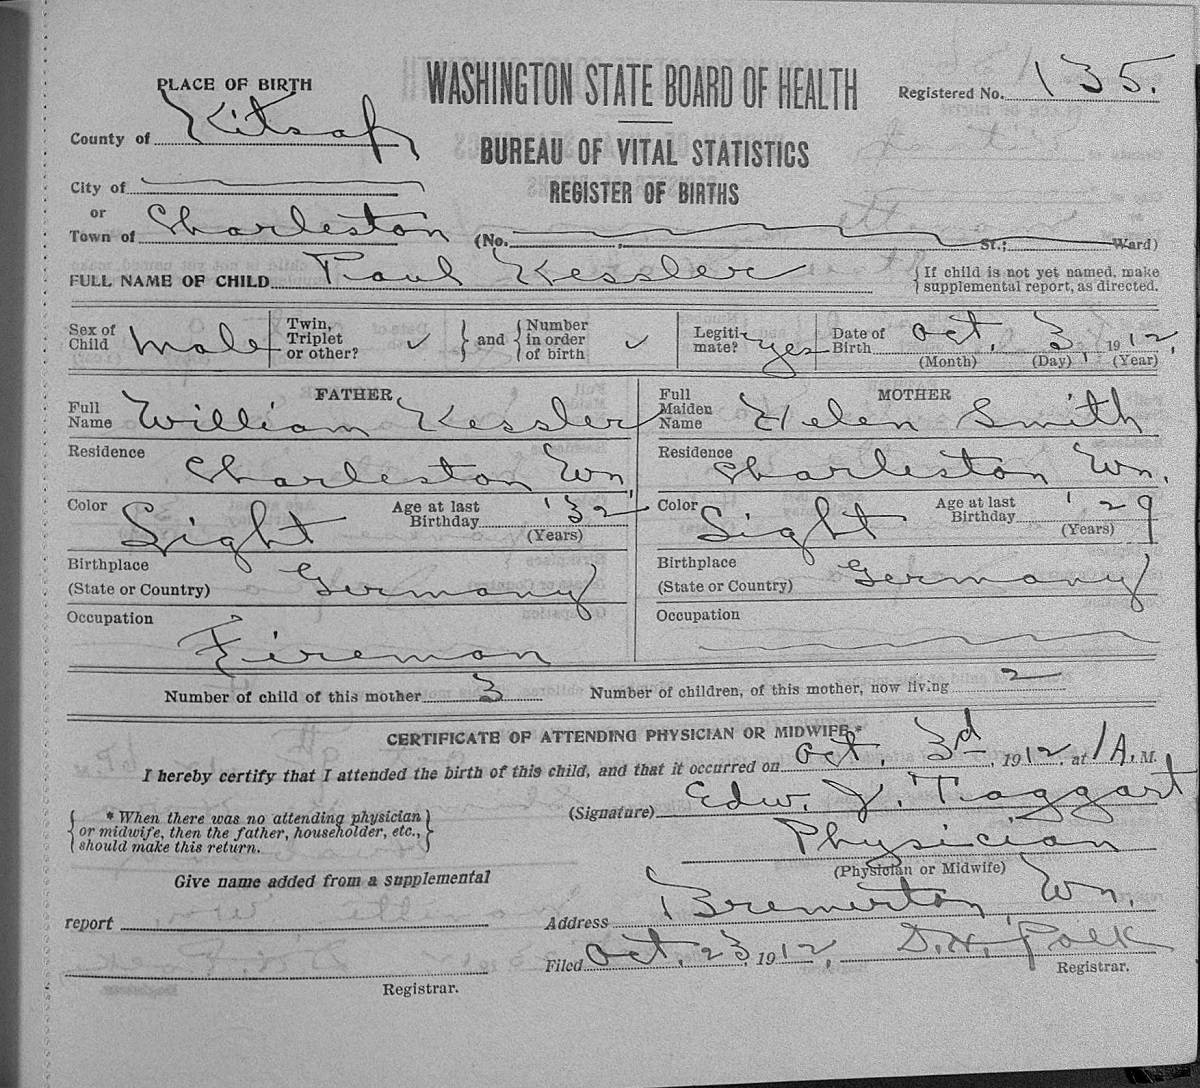 PLACE OF BIRTH
WASHINGTON STATE BOARD OF HEALTH
Registered No. 135.
County of Kitsap
BUREAU OF VITAL STATISTICS
City of
REGISTER OF BIRTHS
or
Town of Charleston (No. , St.; Ward)
FULL NAME OF CHILD Paul Kessler { If child is not yet named, make supplemental report, as directed.
Sex of Child Male Twin, Triplet or other? ✓ } and { Number in order of birth ✓ Legitimate? yes Date of Birth Oct. 3, 1912,
(Month) (Day) (Year)
FATHER
Full Name William Kessler
Residence Charleston Wn.
Color Light Age at last Birthday 32 (Years)
Birthplace (State or Country) Germany
Occupation Fireman
MOTHER
Full Maiden Name Helen Smith
Residence Charleston Wn.
Color Light Age at last Birthday 29 (Years)
Birthplace (State or Country) Germany
Occupation
Number of child of this mother 3 Number of children, of this mother, now living 2
CERTIFICATE OF ATTENDING PHYSICIAN OR MIDWIFE*
I hereby certify that I attended the birth of this child, and that it occurred on Oct. 3d, 1912, at 1 A. M.
(Signature) Edw. J. Taggart
{ * When there was no attending physician or midwife, then the father, householder, etc., should make this return. }
Physician
(Physician or Midwife)
Give name added from a supplemental
report
Address Bremerton Wn.
Filed Oct. 23, 1912, D. H. Polk
Registrar.
Registrar.